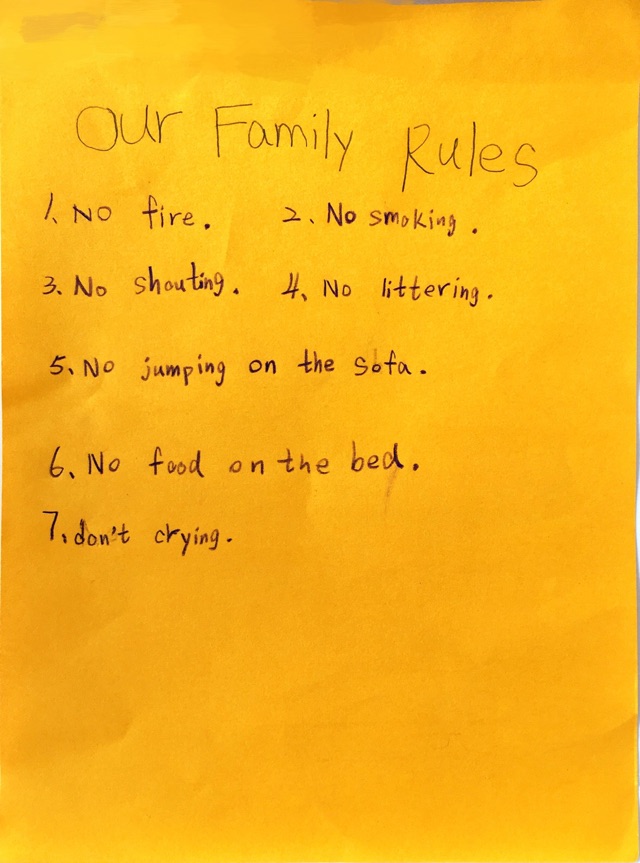 Our Family Rules
1. No fire. 2. No smoking.
3. No shouting. 4. No littering.
5. No jumping on the sofa.
6. No food on the bed.
7. don't crying.